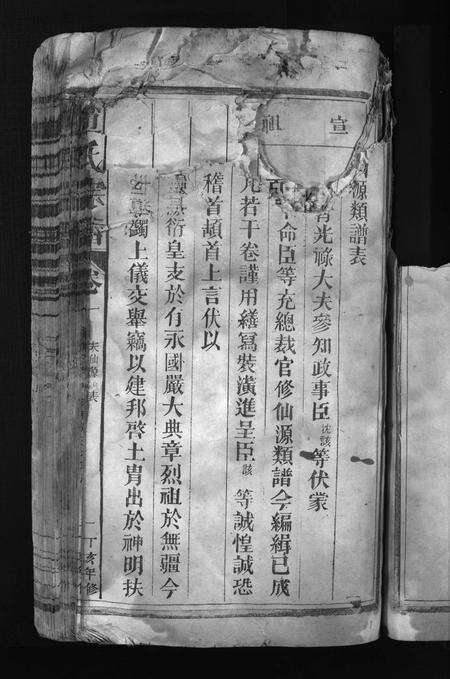 宣
祖
源類譜表
光祿大夫參知政事臣沈該等伏蒙
命臣等充總裁官修仙源類譜今編緝已成
凡若干卷謹用繕寫裝潢進呈臣該等誠惶誠恐
稽首頓首上言伏以
衍皇支於有永國嚴大典章烈祖於無疆今
濁上儀交舉竊以建邦啓土胄出於神明扶
氏宗譜
卷
一
表
丁亥年修